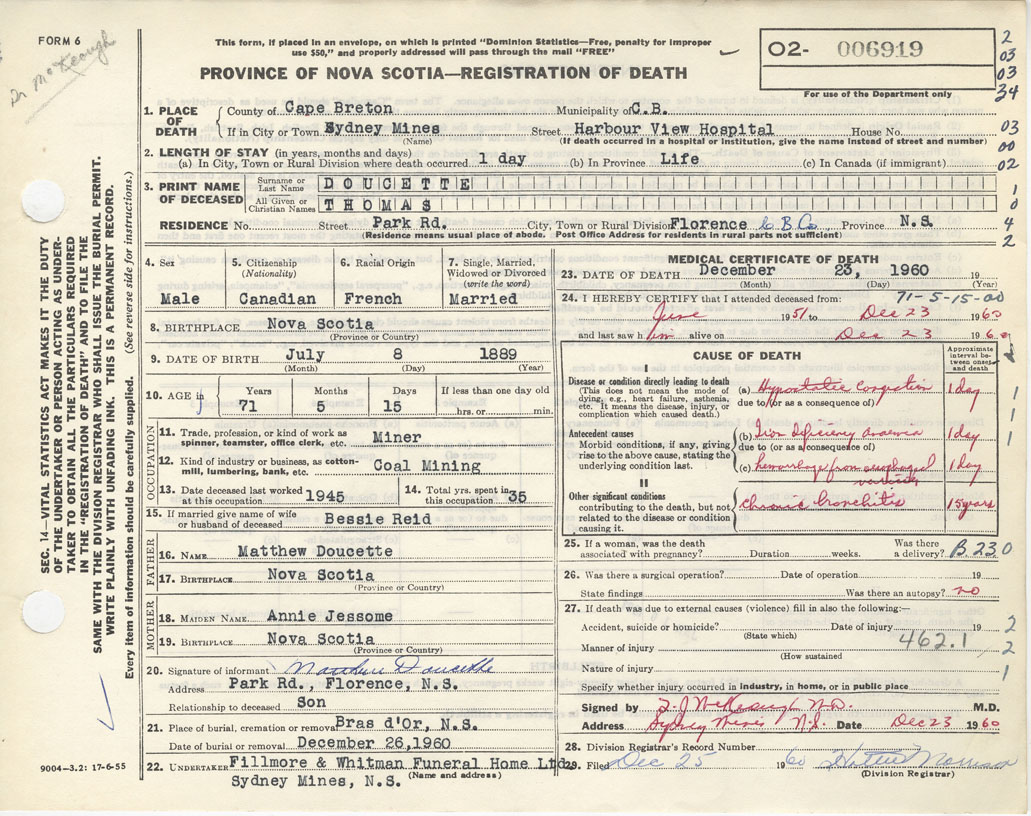 FORM 6
Dr McKeough
This form, if placed in an envelope, on which is printed "Dominion Statistics—Free, penalty for improper
use $50," and properly addressed will pass through the mail "FREE"
PROVINCE OF NOVA SCOTIA—REGISTRATION OF DEATH
O2- 006919
For use of the Department only
2
03
03
34
03
00
02
1
0
4
2
SEC. 14—VITAL STATISTICS ACT MAKES IT THE DUTY
OF THE UNDERTAKER OR PERSON ACTING AS UNDER-
TAKER TO OBTAIN ALL THE PARTICULARS REQUIRED
IN THE "REGISTRATION OF DEATH" AND TO FILE THE
SAME WITH THE DIVISION REGISTRAR WHO SHALL ISSUE THE BURIAL PERMIT.
WRITE PLAINLY WITH UNFADING INK. THIS IS A PERMANENT RECORD.
Every item of information should be carefully supplied. (See reverse side for instructions.)
1. PLACE OF DEATH County of Cape Breton Municipality of C.B.
If in City or Town Sydney Mines Street Harbour View Hospital House No.
(Name) (If death occurred in a hospital or institution, give the name instead of street and number)
2. LENGTH OF STAY (in years, months and days)
(a) In City, Town or Rural Division where death occurred 1 day (b) In Province Life (c) In Canada (if immigrant)
3. PRINT NAME OF DECEASED Surname or Last Name DOUCETTE
All Given or Christian Names THOMAS
RESIDENCE No. Street Park Rd. City, Town or Rural Division Florence C.B.Co. Province N.S.
(Residence means usual place of abode. Post Office Address for residents in rural parts not sufficient)
4. Sex 5. Citizenship (Nationality) 6. Racial Origin 7. Single, Married, Widowed or Divorced (write the word)
Male Canadian French Married
8. BIRTHPLACE Nova Scotia
(Province or Country)
9. DATE OF BIRTH July 8 1889
(Month) (Day) (Year)
10. AGE in Years Months Days If less than one day old
71 5 15 hrs. or min.
OCCUPATION
11. Trade, profession, or kind of work as spinner, teamster, office clerk, etc. Miner
12. Kind of industry or business, as cotton-mill, lumbering, bank, etc. Coal Mining
13. Date deceased last worked at this occupation. 1945 14. Total yrs. spent in this occupation 35
15. If married give name of wife or husband of deceased Bessie Reid
FATHER
16. NAME Matthew Doucette
17. BIRTHPLACE Nova Scotia
(Province or Country)
MOTHER
18. MAIDEN NAME Annie Jessome
19. BIRTHPLACE Nova Scotia
(Province or Country)
20. Signature of informant Matthew Doucette
Address Park Rd., Florence, N.S.
Relationship to deceased Son
21. Place of burial, cremation or removal Bras d'Or, N.S.
Date of burial or removal December 26,1960
22. UNDERTAKER Fillmore & Whitman Funeral Home Ltd.
(Name and address)
Sydney Mines, N.S.
9004—3.2: 17-6-55
MEDICAL CERTIFICATE OF DEATH
23. DATE OF DEATH December 23, 1960 19
(Month) (Day) (Year)
71-5-15-00
24. I HEREBY CERTIFY that I attended deceased from:
June 1951 to Dec 23 1960
and last saw him alive on Dec 23 1960
CAUSE OF DEATH
Approximate interval between onset and death
I
Disease or condition directly leading to death
(This does not mean the mode of dying, e.g., heart failure, asthenia, etc. It means the disease, injury, or complication which caused death.)
(a) Hypostatic Congestion 1 day
due to (or as a consequence of)
Antecedent causes
Morbid conditions, if any, giving rise to the above cause, stating the underlying condition last.
(b) Iron deficiency anaemia 1 day
due to (or as a consequence of)
(c) hemorrhage from esophageal 1 day
II
Other significant conditions contributing to the death, but not related to the disease or condition causing it.
chronic bronchitis 15 years
1
1
1
25. If a woman, was the death associated with pregnancy? Duration weeks. Was there a delivery?
B.23.0
26. Was there a surgical operation? Date of operation 19
State findings Was there an autopsy? no
27. If death was due to external causes (violence) fill in also the following:—
Accident, suicide or homicide? Date of injury 19
(State which)
Manner of injury 462.1
(How sustained)
Nature of injury
2
2
1
Specify whether injury occurred in industry, in home, or in public place
Signed by McKeough M.D. M.D.
Address Sydney Mines N.S. Date Dec 23 1960
28. Division Registrar's Record Number
29. Filed Dec 25 1960 Hattie Morrison
(Division Registrar)